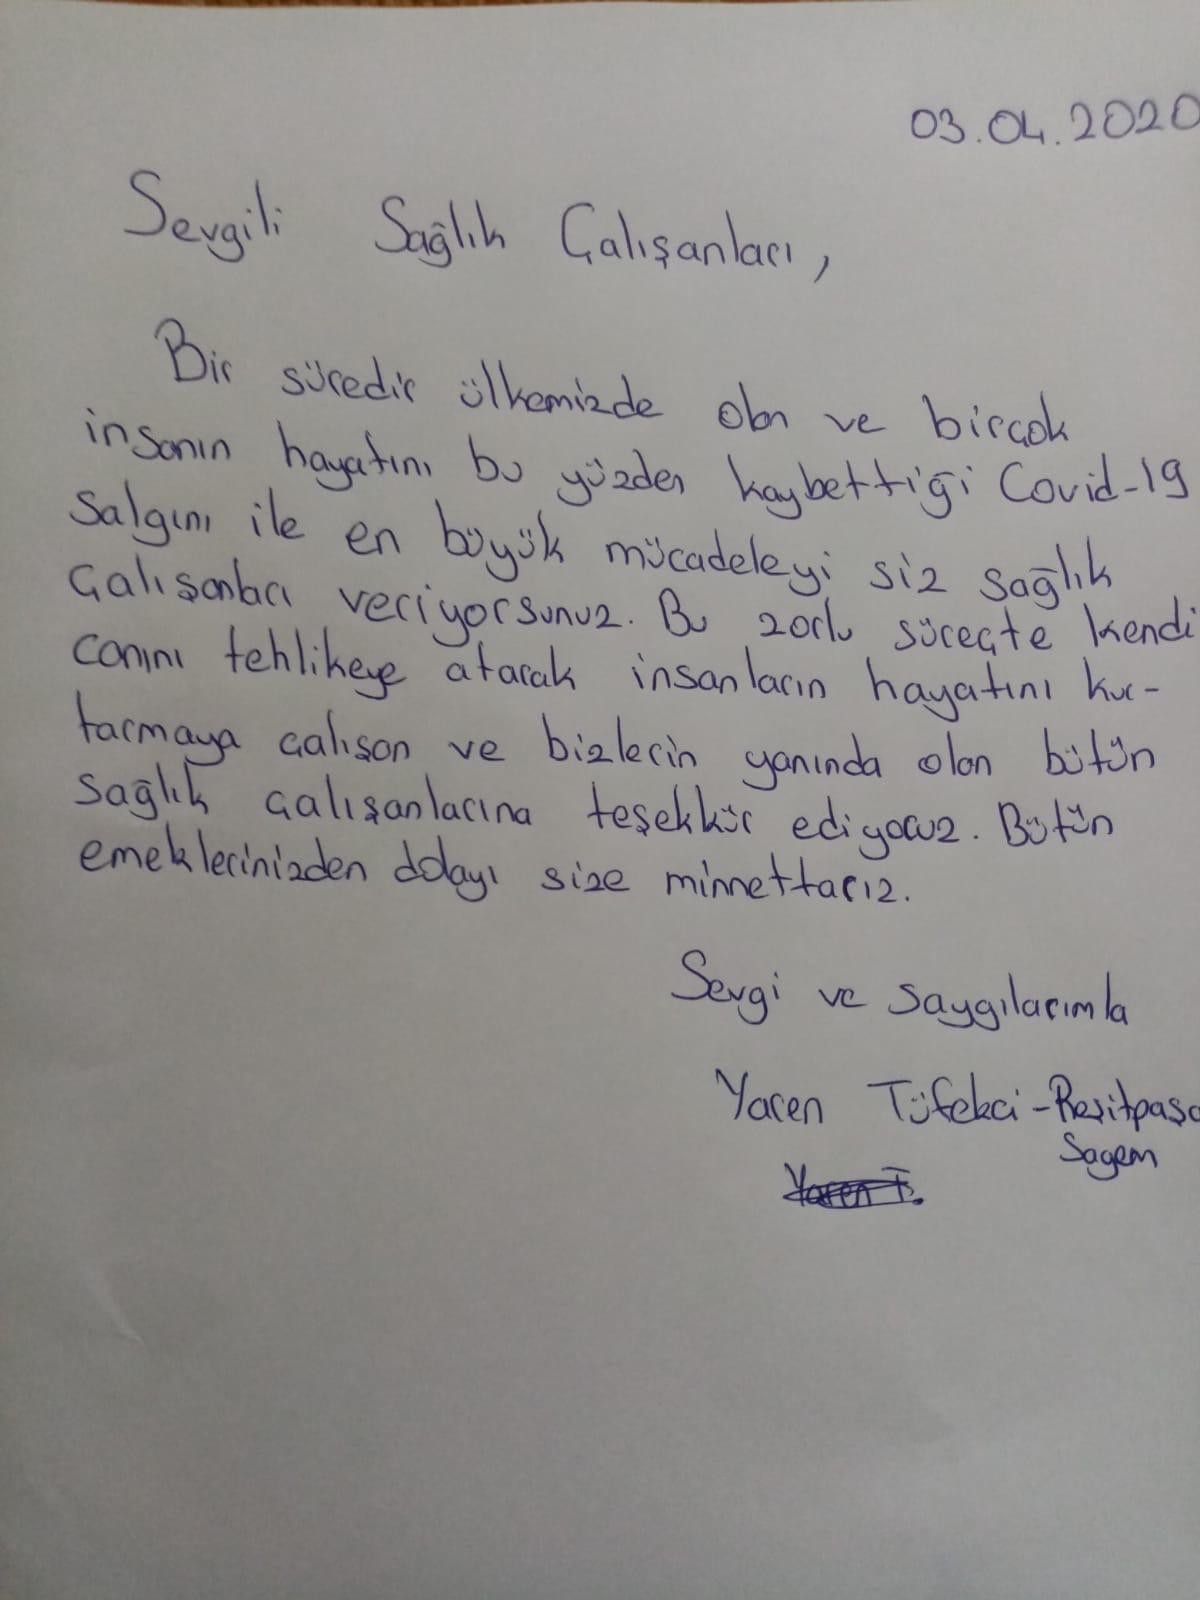 03.04.2020
Sevgili Sağlık Çalışanları,
Bir süredir ülkemizde olan ve birçok
insanın hayatını bu yüzden kaybettiği Covid-19
Salgını ile en büyük mücadeleyi siz sağlık
çalışanları veriyorsunuz. Bu zorlu süreçte kendi
canını tehlikeye atarak insanların hayatını kur-
tarmaya çalışan ve bizlerin yanında olan bütün
sağlık çalışanlarına teşekkür ediyoruz. Bütün
emeklerinizden dolayı size minnettarız.
Sevgi ve saygılarımla
Yaren Tüfekci - Reşitpaşa
Sagem
Yaren T.